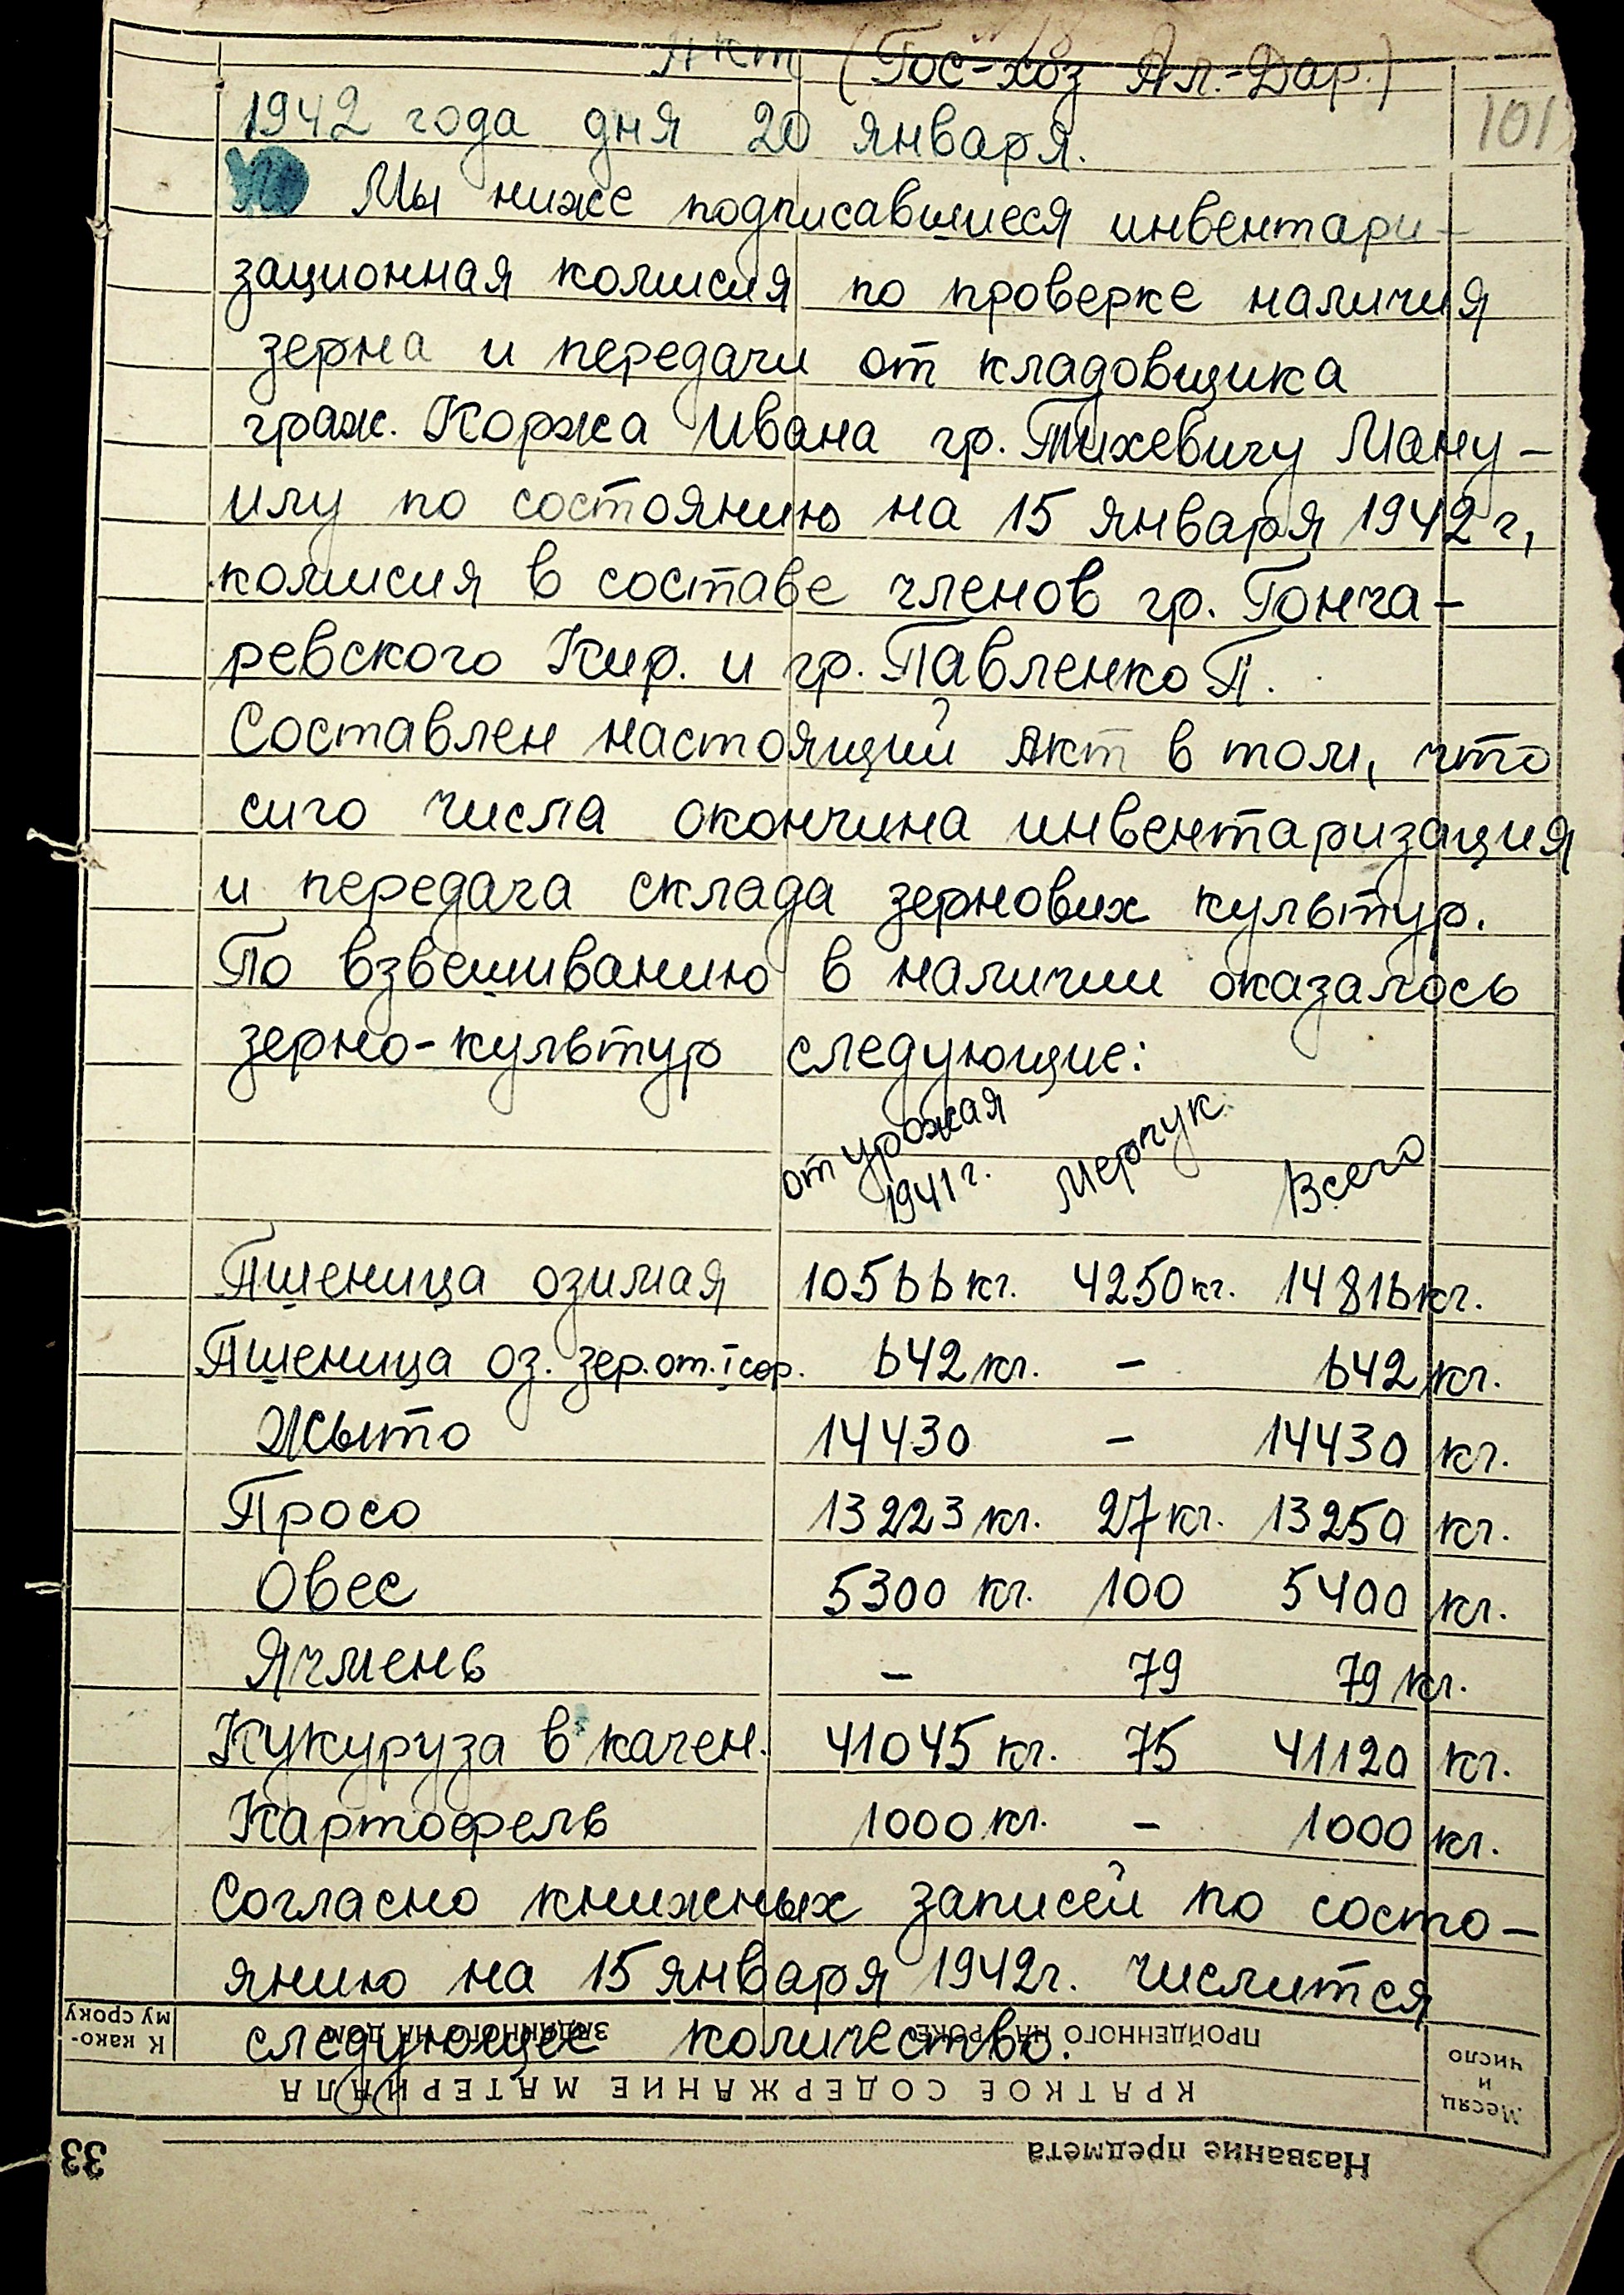 Акт (Гос-хоз Ал.-Дар.)
101
1942 года дня 20 января.
Мы ниже подписавшиеся инвентари-
зационная комисия по проверке наличия
зерна и передачи от кладовщика
граж. Коржа Ивана гр. Тихевичу Ману-
илу по состоянию на 15 января 1942 г,
комисия в составе членов гр. Гонча-
ревского Кир. и гр. Павленко П.
Составлен настоящий Акт в том, что
сиго числа окончина инвентаризация
и передача склада зернових культур.
По взвешиванию в наличии оказалось
зерно-культур следующие:
от урожая 1941 г. Мерчук Всего
Пшеница озимая 10566 кг. 4250 кг. 14816 кг.
Пшеница оз. зер. от. I сор. 642 кг. – 642 кг.
Жыто 14430 – 14430 кг.
Просо 13223 кг. 27 кг. 13250 кг.
Овес 5300 кг. 100 5400 кг.
Ячмень – 79 79 кг.
Кукуруза в качен. 41045 кг. 75 41120 кг.
Картофель 1000 кг. – 1000 кг.
Согласно книжных записей по состо-
янию на 15 января 1942 г. числится
следующее количество:
К како-
му сроку
ЗАДАННОГО НА ДОМ
ПРОЙДЕННОГО НА УРОКЕ
Месяц
и
число
КРАТКОЕ СОДЕРЖАНИЕ МАТЕРИАЛА
Название предмета
33